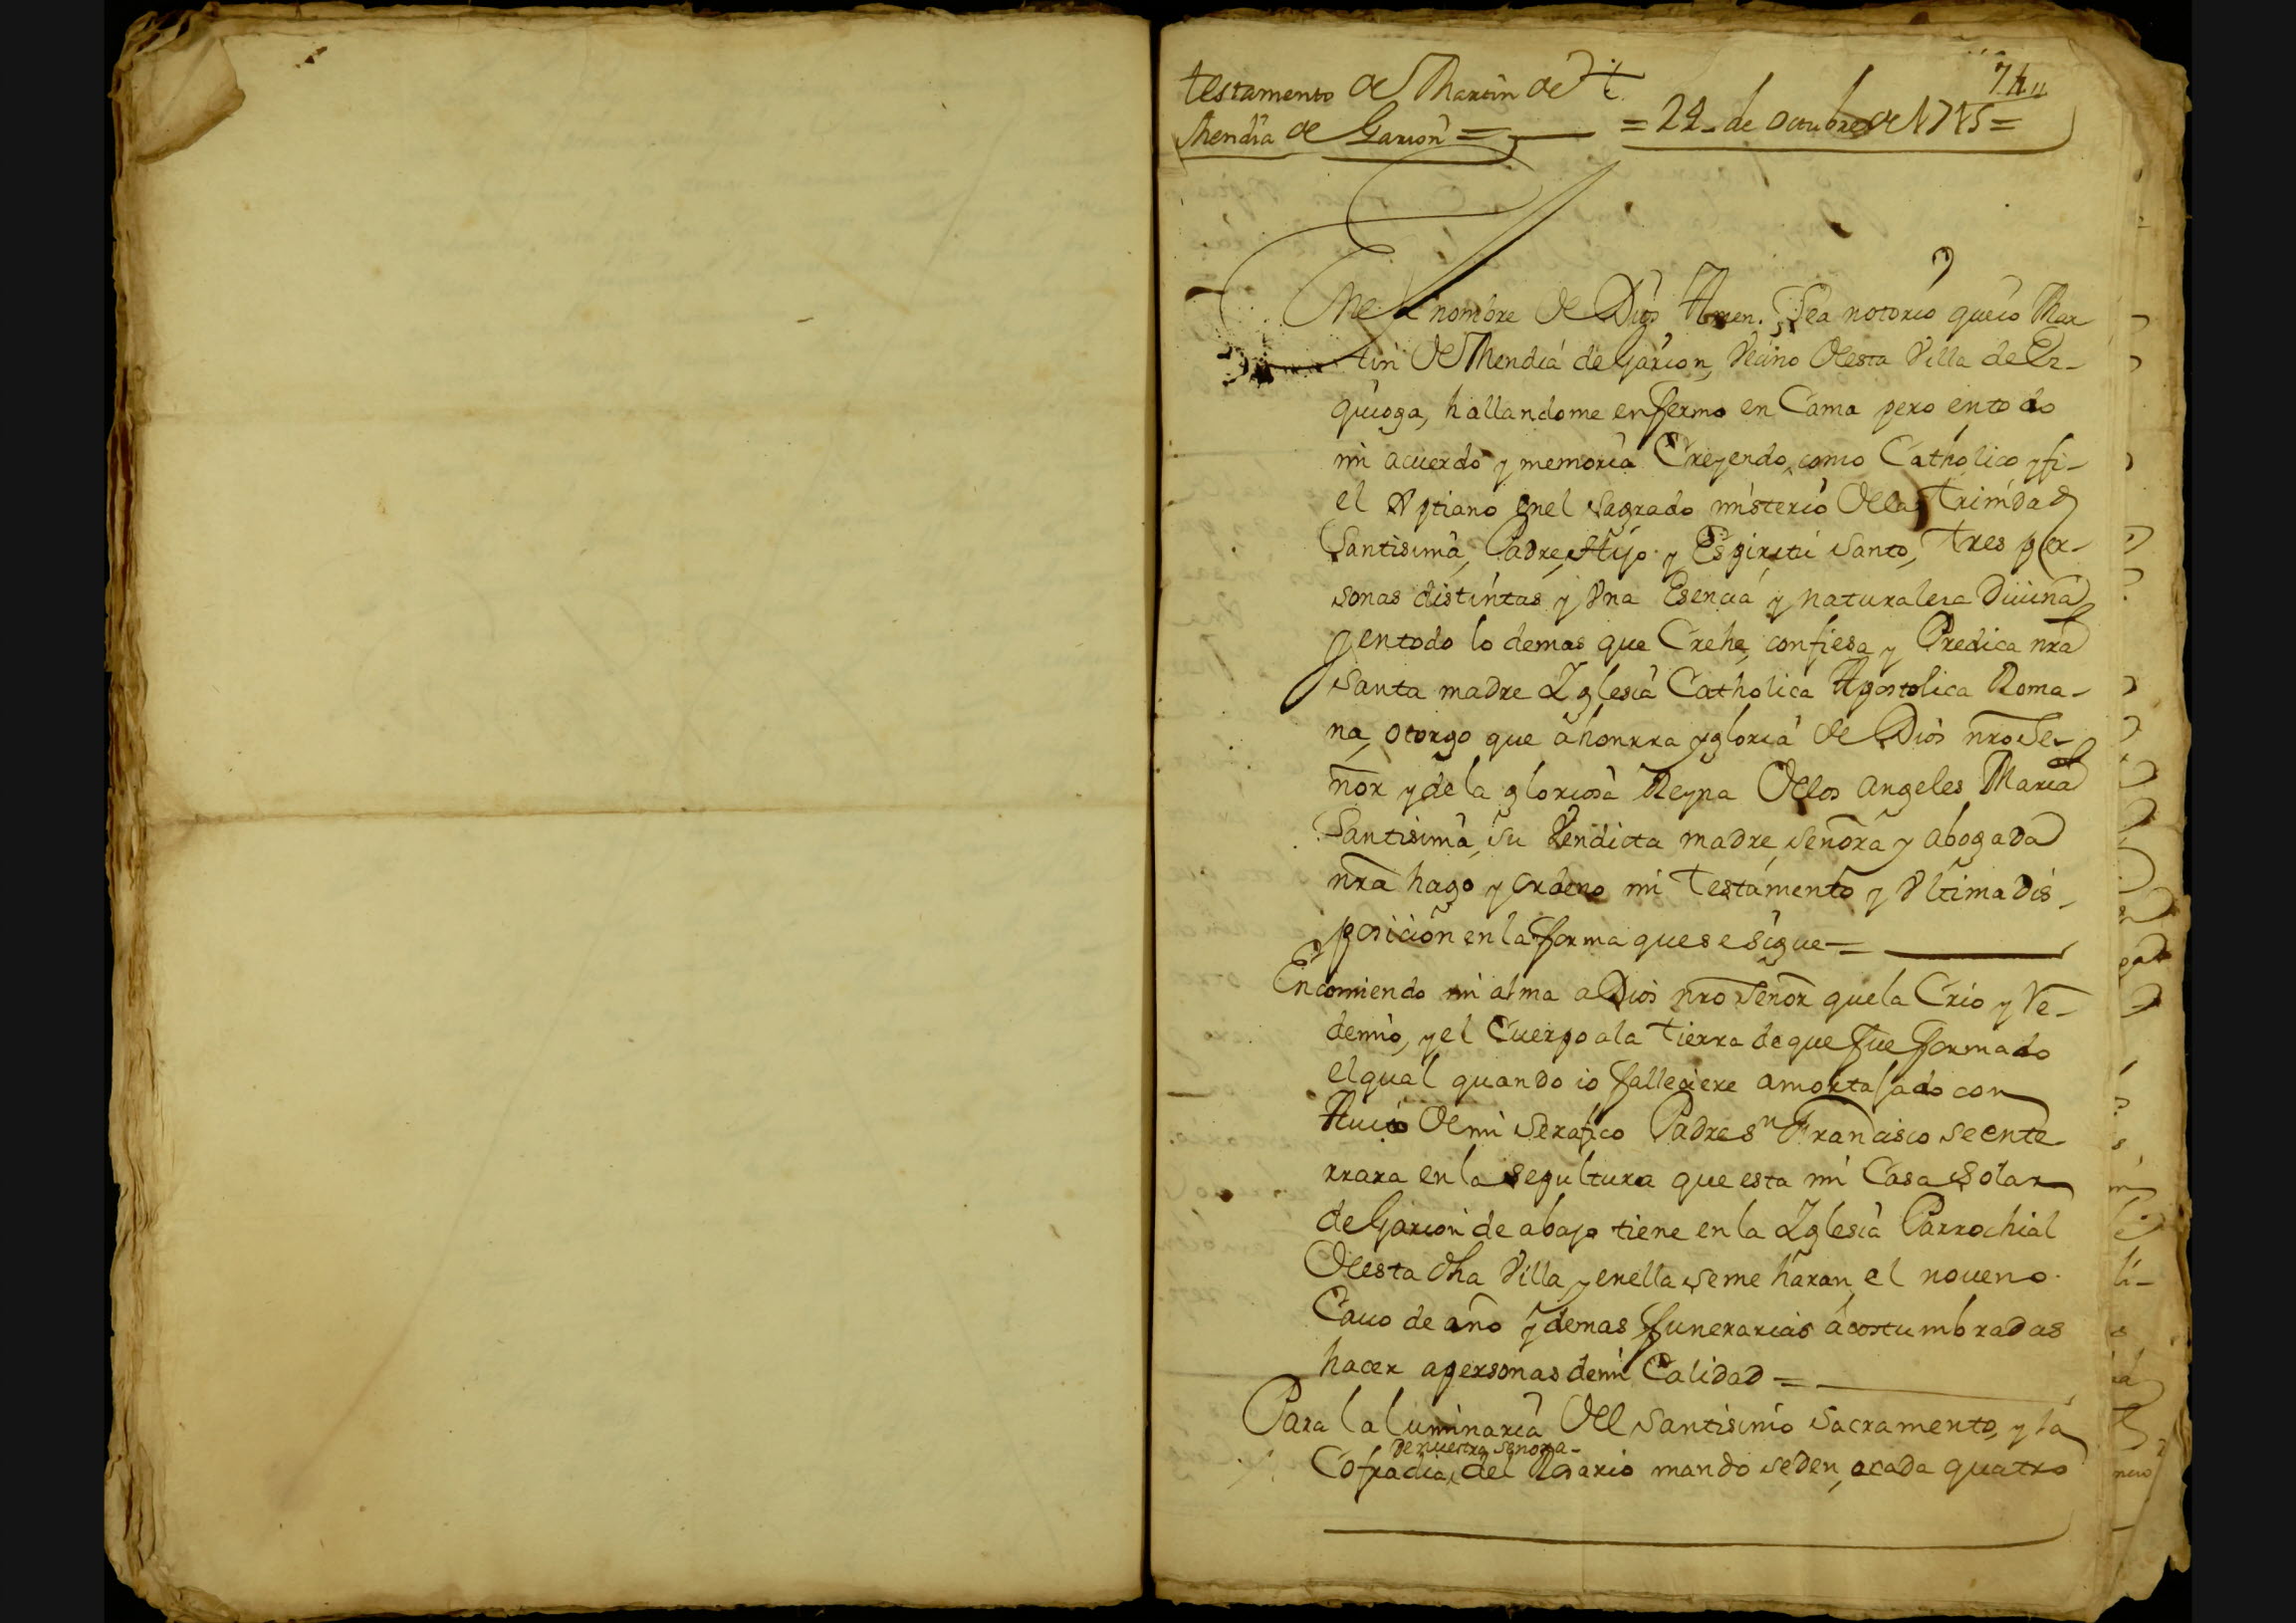 testamento de Martin de
Mendia de Garion =
= 24 de octubre de 1715 =
En el nombre de Dios Amen. Sea notorio que io Mar-
tin de Mendia de Garion, Vecino desta Villa de Ez-
quioga, hallandome enfermo en Cama pero en todo
mi acuerdo y memoria Creyendo, como Catholico y fi-
el Xptiano en el sagrado misterio de la Trinidad
Santisima, Padre, Hijo y Espiritu Santo, Tres per-
sonas distintas y Vna Esencia y naturaleza Diuina
y en todo lo demas que Crehe, confiesa y Predica nra
Santa madre Yglesia Catholica Apostolica Roma-
na, otorgo que a honrra y gloria de Dios nro Se-
ñor y de la gloriosa Reyna de los Angeles Maria
Santisima, su Vendicta madre, señora y abogada
nra hago y ordeno mi Testamento y Vltima dis-
posicion en la forma que se sigue =
Encomiendo mi alma a Dios nro Señor que la Crio y Re-
demio, y el Cuerpo a la tierra de que fue formado
el qual quando io falleciere amortajado con
Auito de mi Serafico Padre Sn Francisco se ente-
rrara en la sepultura que esta mi Casa Solar
de Garion de abajo tiene en la Yglesia Parrochial
desta dha Villa, y en ella se me haran el noueno
Cauo de año y demas funerarias acostumbradas
hacer a personas de mi Calidad =
Para la luminaria del santisimo sacramento, y la
de nuestra señora
Cofradia, del Rosario mando se den, a cada quatro